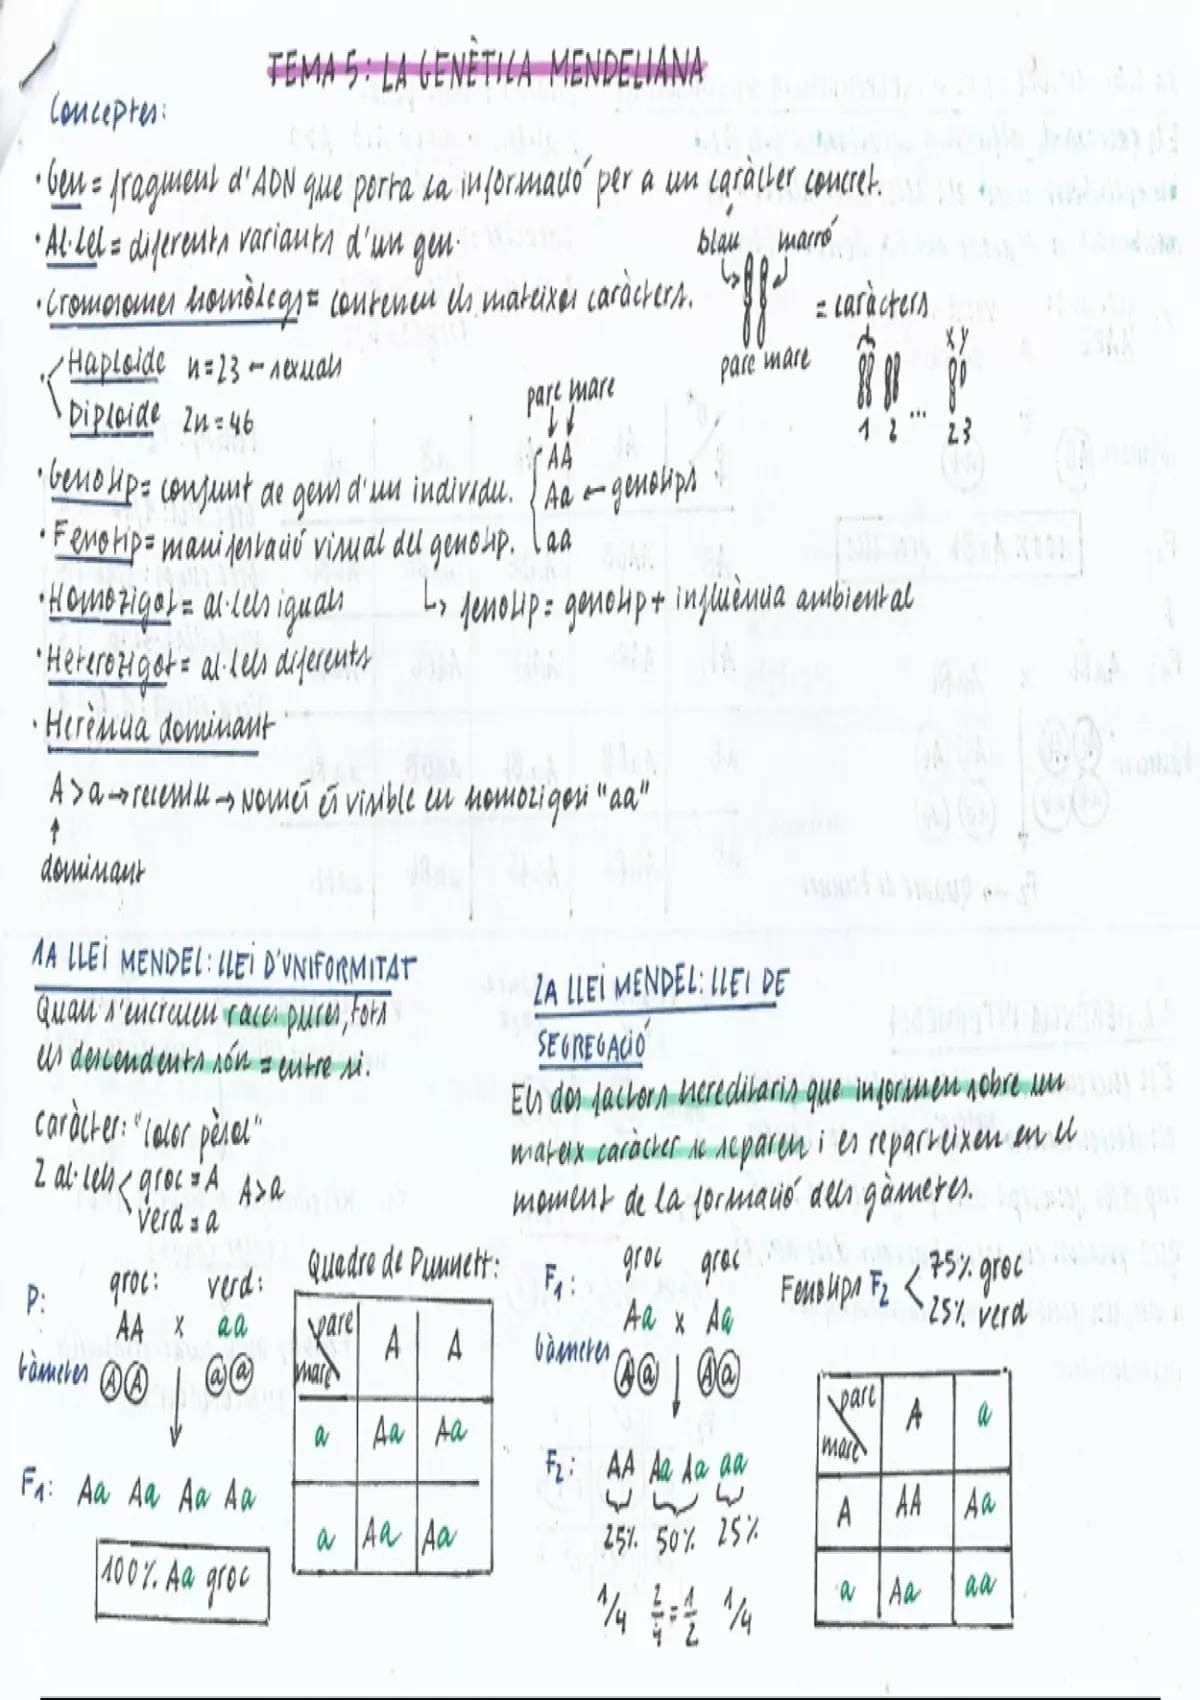 TEMA 5: LA GENÈTICA MENDELIANA
Conceptes:
· Gen = fragment d'ADN que porta la informació per a un caràcter concret.
· Al·lel = diferents variants d'un gen.
blau marró
· Cromosomes homòlegs = contenen els mateixos caràcters.
= caràcters
pare mare
X Y
1 2 ... 23
· Haploide n=23 ← sexuals
Diploide 2n=46
pare mare
AA
· Genotip = conjunt de gens d'un individu. Aa ← genotips
· Fenotip = manifestació visual del genotip. aa
· Homozigot = al·lels iguals ↳ fenotip = genotip + influència ambiental
· Heterozigot = al·lels diferents
· Herència dominant
A > a → recessiu → només és visible en homozigosi "aa"
↑
dominant
1A LLEI MENDEL: LLEI D'UNIFORMITAT
Quan s'encreuen races pures, tots
els descendents són = entre si.
caràcter: "color pèsol"
2 al·lels < groc = A A>a
verd = a
P: groc: verd:
AA x aa
Gàmetes A A a a
↓
F1: Aa Aa Aa Aa
100% Aa groc
Quadre de Punnett:
pare A A
mare
a Aa Aa
a Aa Aa
2A LLEI MENDEL: LLEI DE
SEGREGACIÓ
Els dos factors hereditaris que informen sobre un
mateix caràcter se separen i es reparteixen en el
moment de la formació dels gàmetes.
F1: groc groc
Aa x Aa
Gàmetes A a A a
↓
F2: AA Aa Aa aa
25% 50% 25%
1/4 2/4 = 1/2 1/4
Fenotips F2 < 75% groc
25% verd
pare A a
mare
A AA Aa
a Aa aa